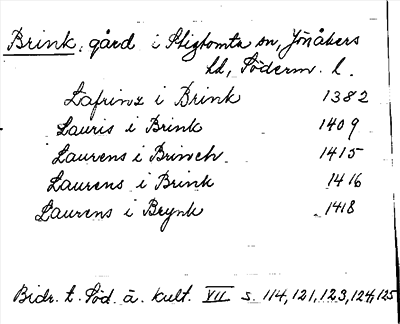 Brink, gård i Stigtomta sn, Jönåkers
hd, Söderm. l.
Lafrinz i Brink 1382
Lauris i Brink 1409
Laurens i Brinch 1415
Laurens i Brink 1416
Laurens i Brynk 1418
Bidr. t. Söd. ä. kult. VII s. 114, 121, 123, 124, 125